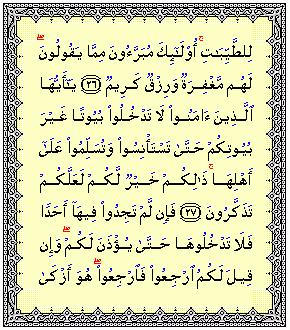 لِلطَّيِّبَـٰتِ ۚ أُو۟لَـٰٓئِكَ مُبَرَّءُونَ مِمَّا يَقُولُونَ ۖ
لَهُم مَّغْفِرَةٌ وَرِزْقٌ كَرِيمٌ ﴿٢٦﴾ يَـٰٓأَيُّهَا
ٱلَّذِينَ ءَامَنُوا۟ لَا تَدْخُلُوا۟ بُيُوتًا غَيْرَ
بُيُوتِكُمْ حَتَّىٰ تَسْتَأْنِسُوا۟ وَتُسَلِّمُوا۟ عَلَىٰٓ
أَهْلِهَا ۚ ذَٰلِكُمْ خَيْرٌ لَّكُمْ لَعَلَّكُمْ
تَذَكَّرُونَ ﴿٢٧﴾ فَإِن لَّمْ تَجِدُوا۟ فِيهَآ أَحَدًا
فَلَا تَدْخُلُوهَا حَتَّىٰ يُؤْذَنَ لَكُمْ ۖ وَإِن
قِيلَ لَكُمُ ٱرْجِعُوا۟ فَٱرْجِعُوا۟ ۖ هُوَ أَزْكَىٰ